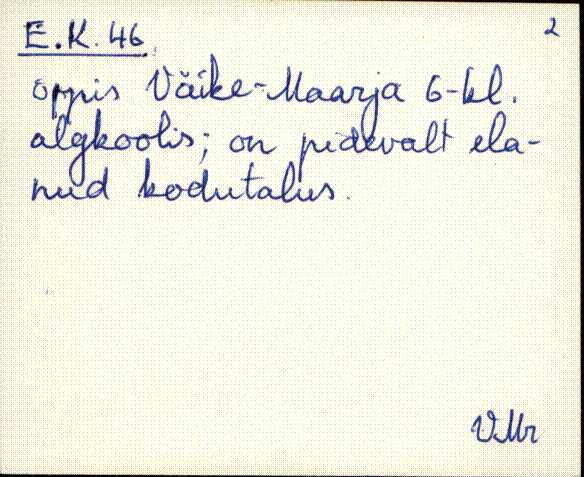 E.K. 46.
2
õppis Väike-Maarja 6-kl.
algkoolis; on pidevalt ela-
nud kodutalus.
VMr